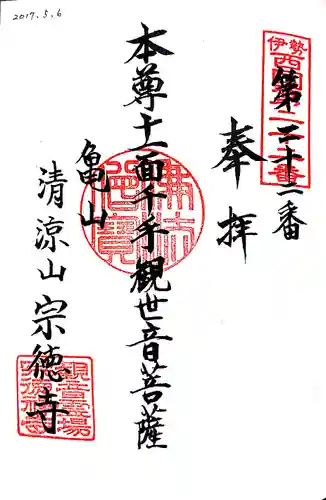 2017.5.6
伊勢
西国第二十二番
第二十二番
奉拝
本尊十一面千手観世音菩薩
亀山
清涼山宗徳寺